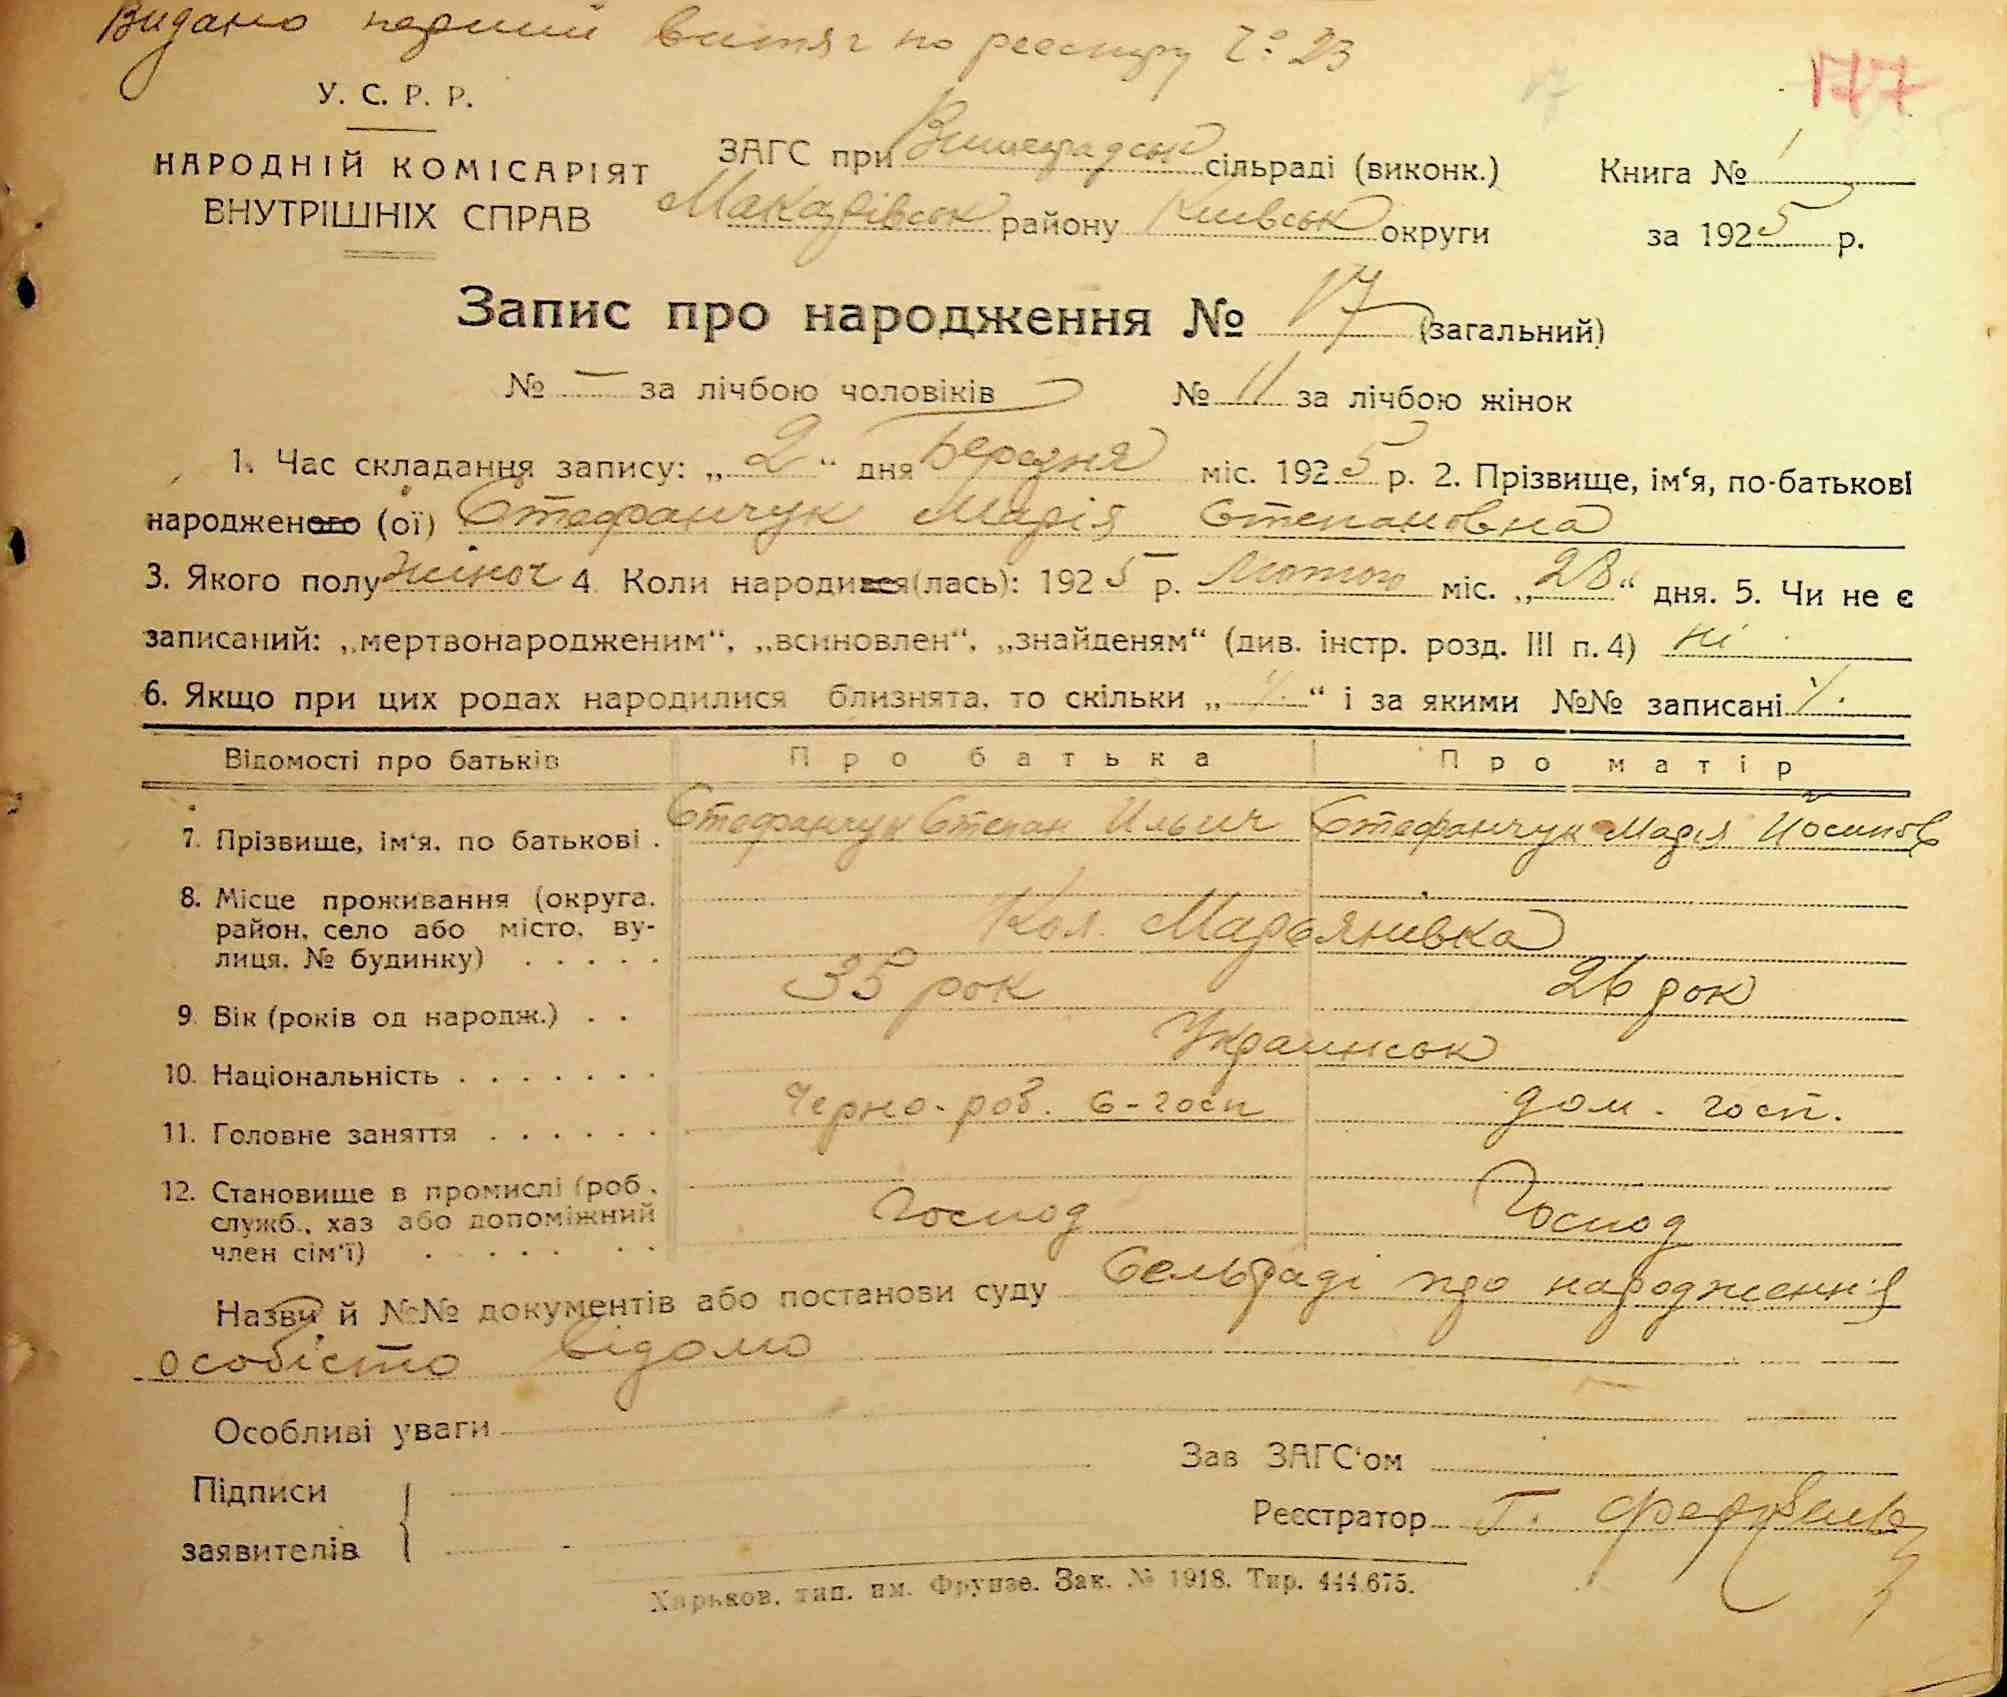 Видано перший витяг по реєстру Ч° 23
177
У. С. Р. Р.
НАРОДНІЙ КОМІСАРІЯТ
ВНУТРІШНІХ СПРАВ
ЗАГС при сільраді (виконк.)
Макарівськ району Київськ округи
Книга № 1
за 1925 р.
Запис про народження № 17 (загальний)
№ — за лічбою чоловіків № 11 за лічбою жінок
1. Час складання запису: „2“ дня Березня міс. 1925 р. 2. Прізвище, ім‘я, по-батькові
народженого (ої) Стефанчук Марія Степановна
3. Якого полу жіноч 4. Коли народився(лась): 1925 р. Лютого міс. „28“ дня. 5. Чи не є
записаний: „мертвонародженим“, „всиновлен“, „знайденям“ (див. інстр. розд. III п. 4) ні
6. Якщо при цих родах народилися близнята, то скільки „ “ і за якими №№ записані
Відомості про батьків Про батька Про матір
7. Прізвище, ім‘я, по батькові . Стефанчук Степан Ильич Стефанчук Марія Йосипов
8. Місце проживання (округа,
район, село або місто, ву-
лиця, № будинку) . . . . . Кол. Марьянивка
9. Вік (років од народж.) . . 35 рок 26 рок
10. Національність . . . . . . . Украинськ
11. Головне заняття . . . . . . Черно-роб. с-госп дом. госп.
12. Становище в промислі (роб.,
служб., хаз або допоміжний
член сім‘ї) . . . . . . Господ Господ
Назви й №№ документів або постанови суду Сельраді про народження
особісто відомо
Особливі уваги
Зав ЗАГС‘ом
Підписи
заявителів
Реєстратор Г.
Харьков, тип. им. Фрунзе. Зак. № 1918. Тир. 444.675.